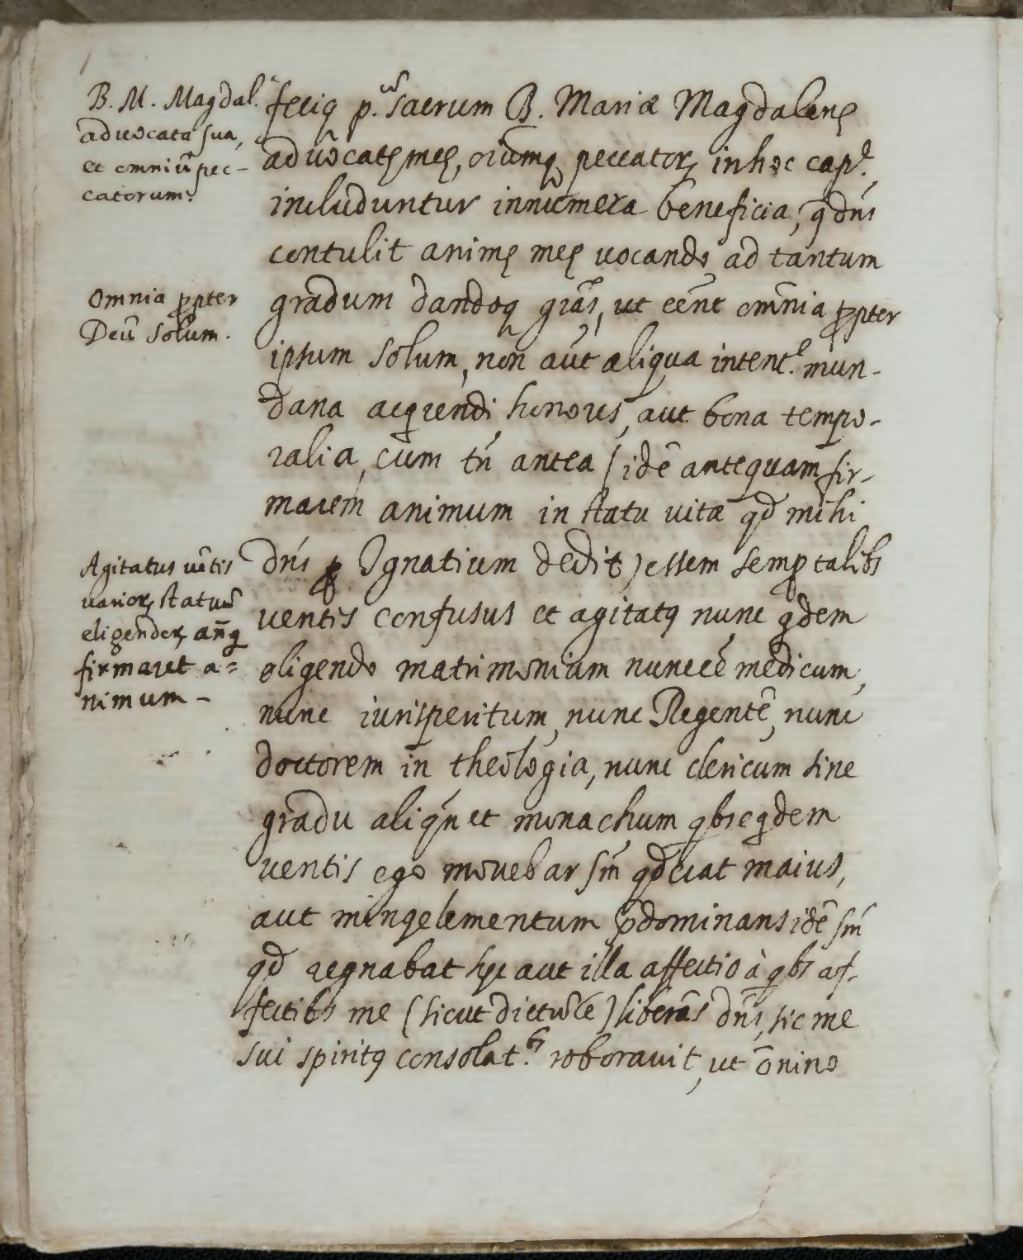 B. M. Magdal.ª
aduocata sua,
et omniū pec-
catorum.
Omnia p̱pter
Deū solum.
Agitatus uētis
varioꝝ statuū
eligendoꝝ, anͣq̃
firmaret a=
nimum –
feciq; p.ᵘˢ sacrum B. Mariæ Magdalenę
aduocatę meę, oīumq; peccatoꝝ in hoc cap.ᵉ,
includuntur innumera beneficia, q̃ dn̄s
contulit animę meę uocando ad tantum
gradum dandoq; grās, ut eēnt omīnia p̱pter
ipsum solum, non aūt aliqua intent.ᵉ mun-
dana acq̇rendi honores, aut bona tempo-
ralia, cum tn̄ antea (idē antequam fir-
marem animum in statu uitæ qđ mihi
dn̄s ꝑ Ignatium dedit) essem semꝑ talibꝰ
uentis confusus et agitatꝰ nunc q̇dem
eligendo matrimonium nunc eē medicum,
nunc iurisperitum, nunc Regentē, nunc
doctorem in theologia, nunc clericum sine
gradu aliqn̄ et monachum qbꝰ eq̇dem
uentis ego mouebar sm̄ qđ erat maius,
aut minꝰ elementum p̄dominans idē sm̄
qđ regnabat hęc aut illa affectio à qbꝰ af-
fectibꝰ me (sicut dictū ē) liberās dn̄s, sic me
sui spiritꝰ consolat.ᵇꝰ roborauit, ut ōnino